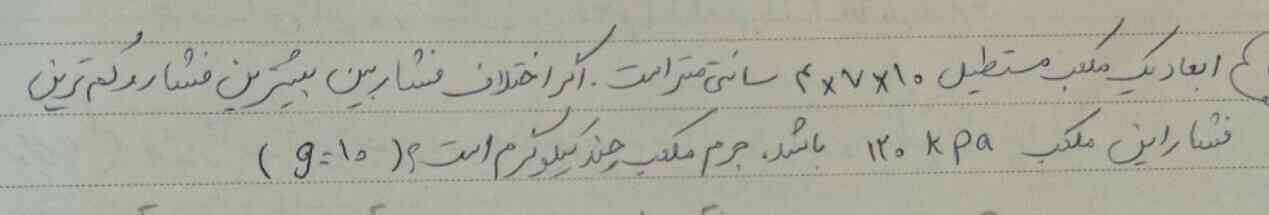 ابعاد یک مکعب مستطیل ۴x۷x۱۰ سانتی متر است. اگر اختلاف فشار بین بیشترین فشار و کم ترین
فشار این مکعب ۱۲۰ kpa باشد، جرم مکعب چند کیلوگرم است؟ (g=۱۰)